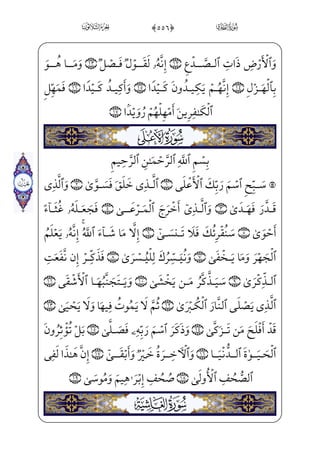 سُورَةُ الطَّارِقِ ﴿٥٥٦﴾ الجُزْءُ الثَّلَاثُونَ
وَٱلْأَرْضِ ذَاتِ ٱلصَّدْعِ ١٢ إِنَّهُۥ لَقَوْلٌ فَصْلٌ ١٣ وَمَا هُوَ
بِٱلْهَزْلِ ١٤ إِنَّهُمْ يَكِيدُونَ كَيْدًا ١٥ وَأَكِيدُ كَيْدًا ١٦ فَمَهِّلِ
ٱلْكَٰفِرِينَ أَمْهِلْهُمْ رُوَيْدًۢا ١٧
سُورَةُ الأَعْلَىٰ
بِسْمِ ٱللَّهِ ٱلرَّحْمَٰنِ ٱلرَّحِيمِ
۞ سَبِّحِ ٱسْمَ رَبِّكَ ٱلْأَعْلَى ١ ٱلَّذِى خَلَقَ فَسَوَّىٰ ٢ وَٱلَّذِى
قَدَّرَ فَهَدَىٰ ٣ وَٱلَّذِىٓ أَخْرَجَ ٱلْمَرْعَىٰ ٤ فَجَعَلَهُۥ غُثَآءً
أَحْوَىٰ ٥ سَنُقْرِئُكَ فَلَا تَنسَىٰٓ ٦ إِلَّا مَا شَآءَ ٱللَّهُ ۚ إِنَّهُۥ يَعْلَمُ
ٱلْجَهْرَ وَمَا يَخْفَىٰ ٧ وَنُيَسِّرُكَ لِلْيُسْرَىٰ ٨ فَذَكِّرْ إِن نَّفَعَتِ
ٱلذِّكْرَىٰ ٩ سَيَذَّكَّرُ مَن يَخْشَىٰ ١٠ وَيَتَجَنَّبُهَا ٱلْأَشْقَى ١١
ٱلَّذِى يَصْلَى ٱلنَّارَ ٱلْكُبْرَىٰ ١٢ ثُمَّ لَا يَمُوتُ فِيهَا وَلَا يَحْيَىٰ ١٣
قَدْ أَفْلَحَ مَن تَزَكَّىٰ ١٤ وَذَكَرَ ٱسْمَ رَبِّهِۦ فَصَلَّىٰ ١٥ بَلْ تُؤْثِرُونَ
ٱلْحَيَوٰةَ ٱلدُّنْيَا ١٦ وَٱلْءَاخِرَةُ خَيْرٌ وَأَبْقَىٰٓ ١٧ إِنَّ هَٰذَا لَفِى
ٱلصُّحُفِ ٱلْأُولَىٰ ١٨ صُحُفِ إِبْرَٰهِيمَ وَمُوسَىٰ ١٩
سُورَةُ الغَاشِيَةِ